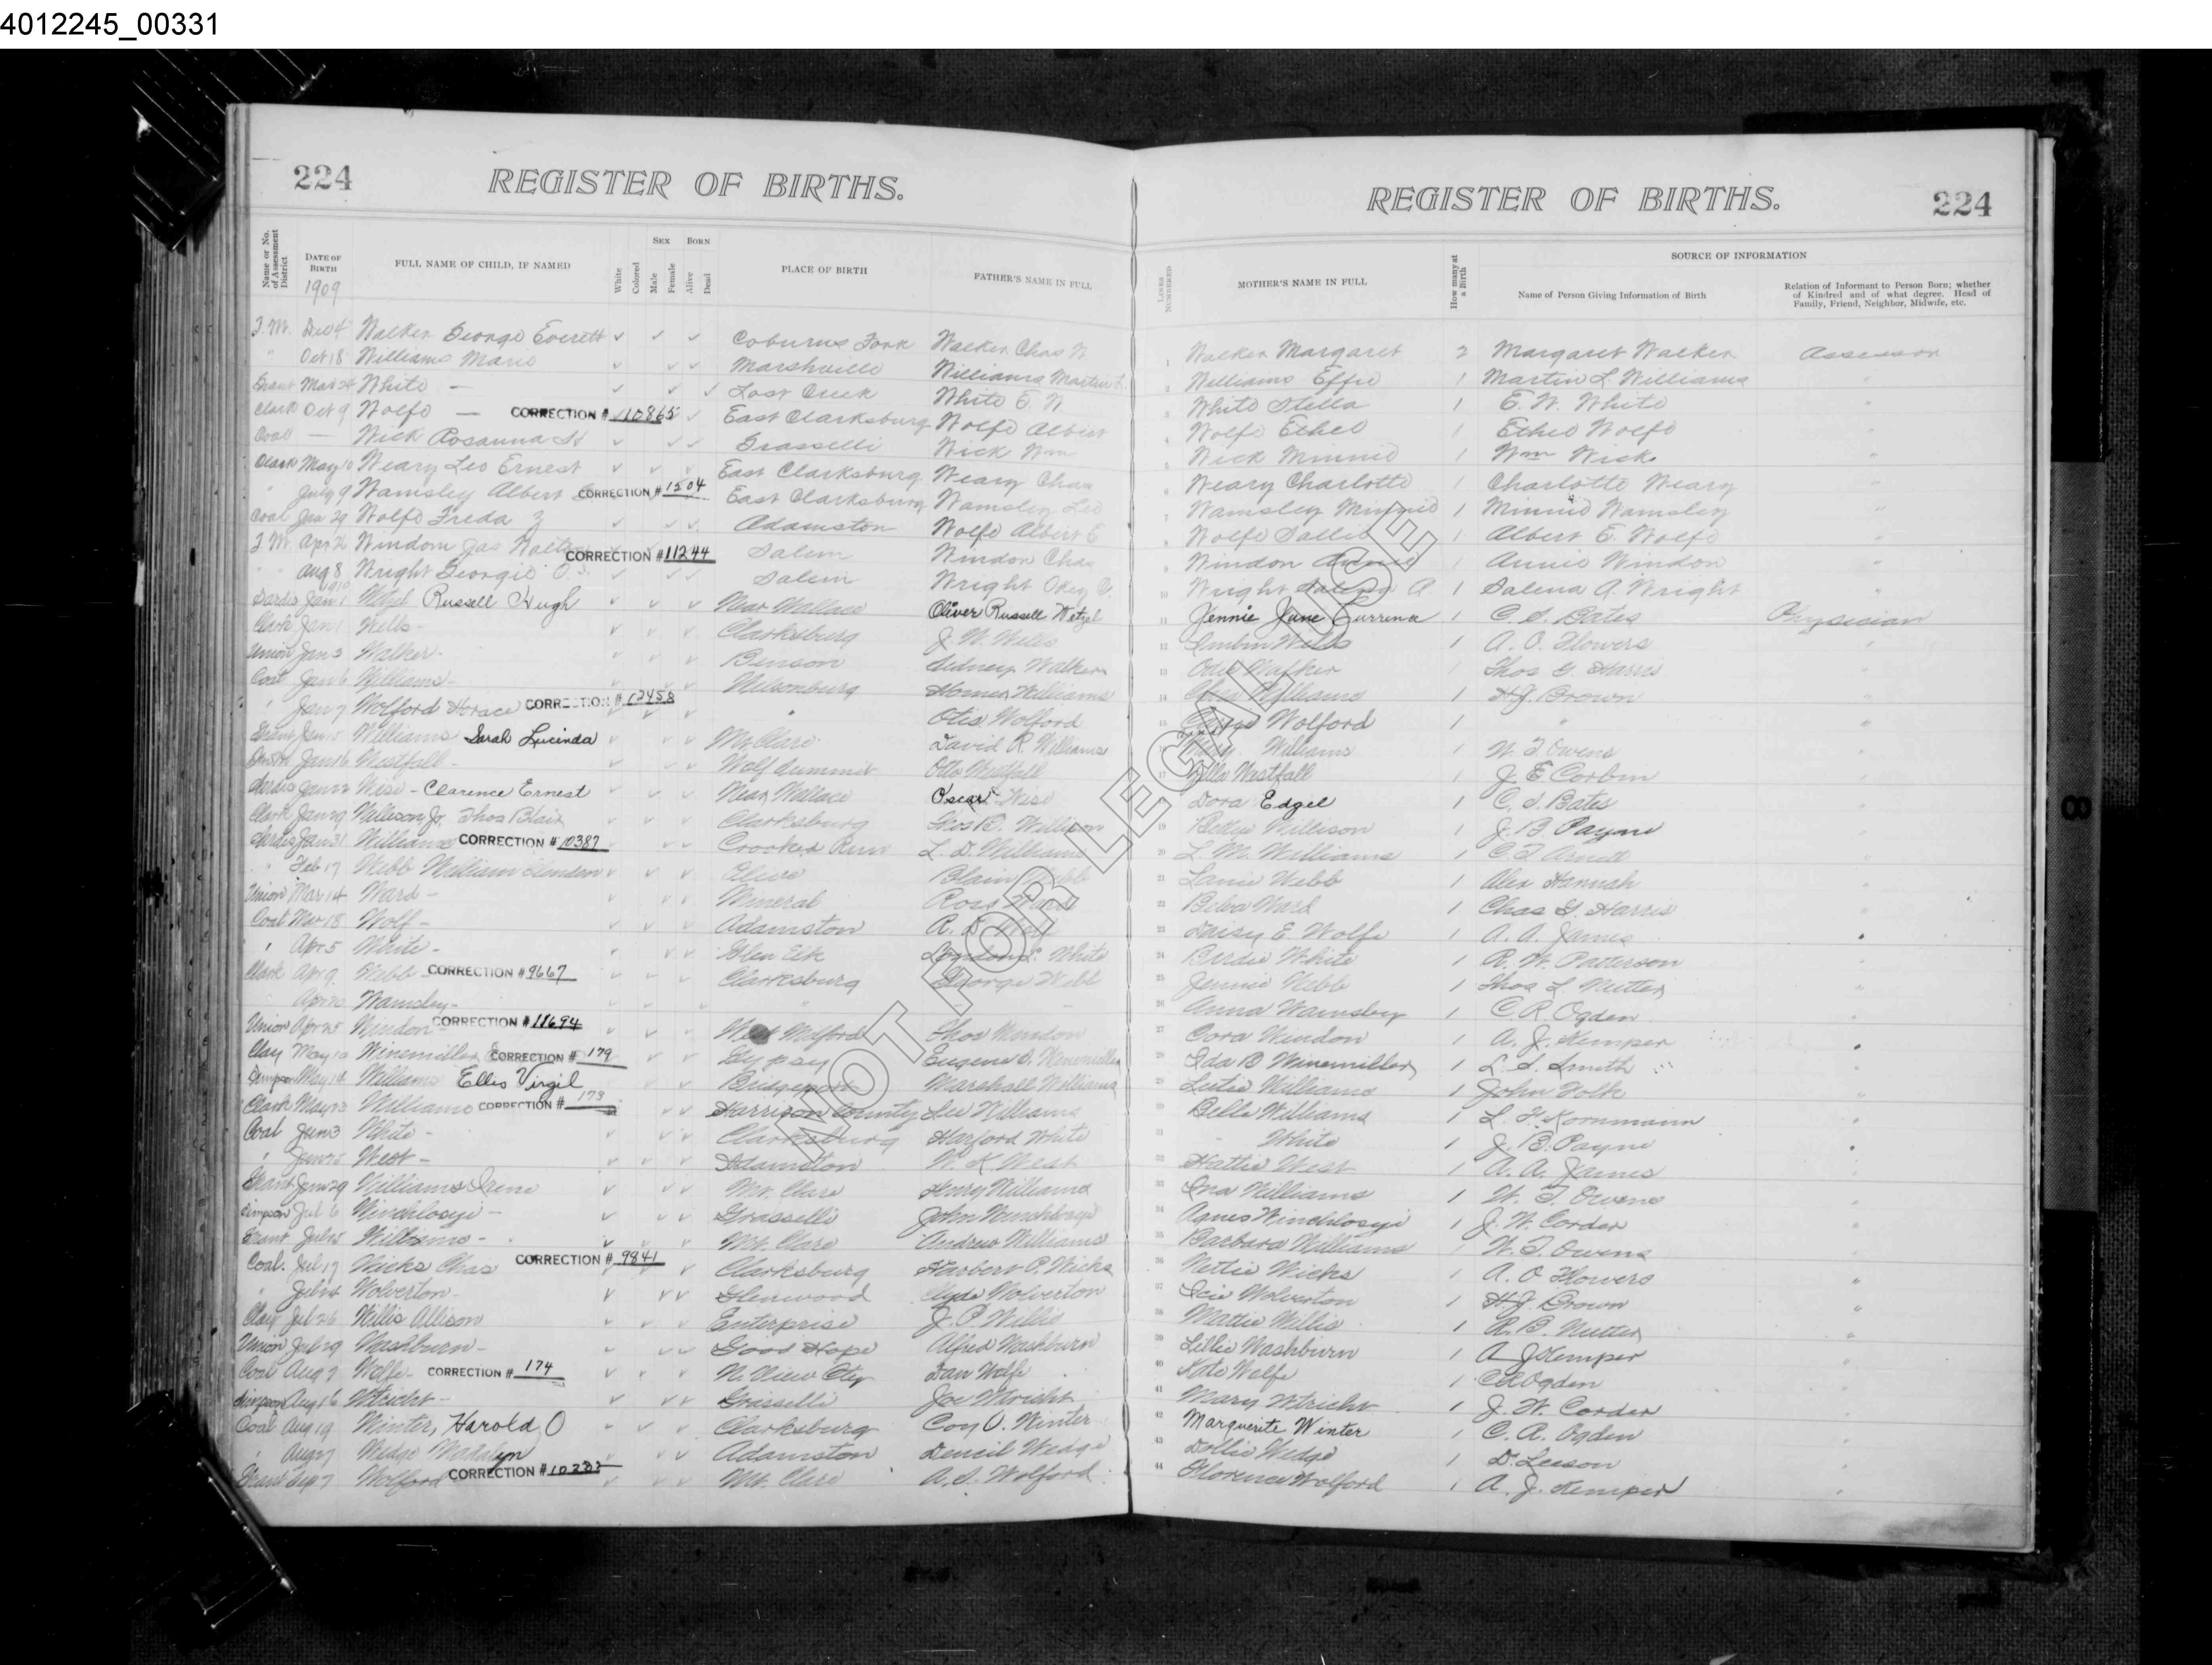 4012245_00331
224 REGISTER OF BIRTHS.
Name or No. of Assessment District
DATE OF BIRTH
1909
FULL NAME OF CHILD, IF NAMED
White
Colored
SEX
Male
Female
BORN
Alive
Dead
PLACE OF BIRTH
FATHER'S NAME IN FULL
T.M. Dec 4 Walker George Everett ✓ ✓ ✓ Coburns Fork Walker Chas W
" Oct 18 Williams Marie ✓ ✓ ✓ Marshville Williams Martin L.
Grant Mar 24 White — ✓ ✓ ✓ Lost Creek White E. W
Clark Oct 9 Wolfe — CORRECTION # 110865 ✓ East Clarksburg Wolfe Albert
Coal — Wick Rosanna ✓ ✓ ✓ Grasselli Wick Wm
Clark May 10 Weary Leo Ernest ✓ ✓ ✓ East Clarksburg Weary Chas
" July 9 Wamsley Albert CORRECTION # 1504 East Clarksburg Wamsley Leo
Coal Jan 29 Wolfe Freda Z ✓ ✓ ✓ Adamston Wolfe Albert E
T.M. Apr 26 Windom Jas Walter CORRECTION # 11244 Salem Windon Chas
" Aug 8 Wright Georgie O.S. ✓ ✓ ✓ Salem Wright Okey C.
1910
Sardis Jan 1 Wetzel Russell Hugh ✓ ✓ ✓ Near Wallace Oliver Russell Wetzel
Clark Jan 1 Wells - ✓ ✓ ✓ Clarksburg J. W. Wells
Union Jan 3 Walker - ✓ ✓ ✓ Benson Sidney Walker
Coal Jan 6 Williams - ✓ ✓ Wilsonburg Homer Williams
" Jan 7 Wolford Horace CORRECTION # 12458 ✓ ✓ ✓ " Otis Wolford
Grant Jan 15 Williams Sarah Lucinda ✓ ✓ ✓ Mt. Clare David R. Williams
Jan 16 Westfall - ✓ ✓ ✓ Wolf Summit Otto Westfall
Sardis Jan 22 Wise - Clarence Ernest ✓ ✓ ✓ Near Wallace Oscar Wise
Clark Jan 29 Willison Jr. Thos Blair ✓ ✓ ✓ Clarksburg Thos B. Willison
Sardis Jan 31 Williams CORRECTION # 10387 ✓ ✓ ✓ Crooked Run L. D. Williams
" Feb 17 Webb William ✓ ✓ ✓ Olive Blain Webb
Union Mar 14 Ward - ✓ ✓ ✓ Mineral Ross Ward
Coal Mar 18 Wolf - ✓ ✓ ✓ Adamston R. D. Wolf
" Apr 5 White - ✓ ✓ ✓ Glen Elk Lyndon L. White
Clark Apr 9 Webb CORRECTION # 9667 ✓ ✓ ✓ Clarksburg George Webb
" Apr 20 Wamsley - ✓ ✓ ✓ " -
Union Apr 25 Windon CORRECTION # 11694 ✓ ✓ ✓ West Milford Thos Windon
Clay May 10 Winemiller CORRECTION # 179 ✓ ✓ Gypsy Eugene S. Winemiller
Simpson May 14 Williams Ellis Virgil ✓ ✓ Bridgeport Marshall Williams
Clark May 23 Williams CORRECTION # 173 ✓ ✓ Harrison County Lee Williams
Coal Jun 3 White - ✓ ✓ ✓ Clarksburg Harford White
" Jun 25 West - ✓ ✓ ✓ Adamston W. K. West
Grant Jun 29 Williams Irene ✓ ✓ ✓ Mt. Clare Henry Williams
Simpson Jul 6 Winchlosye - ✓ ✓ ✓ Grasselli John Winchlosye
Grant Jul 15 Williams - ✓ ✓ ✓ Mt. Clare Andrew Williams
Coal. Jul 17 Wicks Chas CORRECTION # 9841 ✓ ✓ ✓ Clarksburg Harbert P. Wicks
" Jul 24 Wolverton - ✓ ✓ ✓ Glenwood Clyde Wolverton
Clay Jul 26 Willis Allison ✓ ✓ ✓ Enterprise J. P. Willis
Union Jul 29 Washburn - ✓ ✓ ✓ Good Hope Alfred Washburn
Coal Aug 7 Wolfe - CORRECTION # 174 ✓ ✓ ✓ N. View City Dan Wolfe
Simpson Aug 16 Wtricht - ✓ ✓ ✓ Grasselli Joe Wtricht
Coal Aug 19 Winter, Harold O ✓ ✓ ✓ Clarksburg Coy O. Winter
" Aug 27 Wedge Madalyn ✓ ✓ ✓ Adamston Dencil Wedge
Grant Sep 7 Wolford CORRECTION # 10282 ✓ ✓ ✓ Mt. Clare A. S. Wolford
REGISTER OF BIRTHS. 224
LINES NUMBERED
MOTHER'S NAME IN FULL
How many at a Birth
SOURCE OF INFORMATION
Name of Person Giving Information of Birth
Relation of Informant to Person Born; whether of Kindred and of what degree. Head of Family, Friend, Neighbor, Midwife, etc.
1 Walker Margaret 2 Margaret Walker Assessor
2 Williams Effie 1 Martin L. Williams "
3 White Stella 1 E. W. White "
4 Wolfe Ethel 1 Ethel Wolfe "
5 Wick Minnie 1 Wm Wick "
6 Weary Charlotte 1 Charlotte Weary "
7 Wamsley Minnie 1 Minnie Wamsley "
8 Wolfe Sallie 1 Albert E. Wolfe "
9 Windon Annie 1 Annie Windon "
10 Wright Salena A 1 Salena A. Wright "
11 Jennie Jane Currence 1 C. S. Bates Physician
12 Wells 1 A. O. Flowers "
13 Walker 1 Thos G. Harris "
14 Williams 1 H. J. Brown "
15 Wolford 1 " "
Mary Williams 1 W. T. Owens "
17 Ella Westfall 1 J. E. Corbin "
Dora Edgel 1 C. S. Bates "
19 Willison 1 J. B. Payne "
20 L. M. Williams 1 C. T. Arnett "
21 Lanie Webb 1 Alex Hannah "
22 Ward 1 Chas G. Harris "
23 Daisy E. Wolfe 1 A. A. James "
24 Birdie White 1 R. W. Patterson "
25 Jennie Webb 1 Thos L. Nutter "
26 Anna Wamsley 1 C. R. Ogden "
27 Cora Windon 1 A. J. Kemper "
28 Ida B Winemiller 1 L. S. Smith "
29 Williams 1 John Folk "
30 Bella Williams 1 L. F. Kornmann "
31 - White 1 J. B. Payne "
32 Hattie West 1 A. A. James "
33 Ona Williams 1 W. T. Owens "
34 Agnes Winchlosye 1 J. W. Corder "
35 Barbara Williams 1 W. T. Owens "
36 Nettie Wicks 1 A. O Flowers "
37 Ocie Wolverton 1 H. J. Brown "
38 Mattie Willis 1 R. B. Nutter "
39 Lillie Washburn 1 A J Kemper "
40 Kate Wolfe 1 C R Ogden "
41 Mary Wtricht 1 J. W. Corder "
42 Marguerite Winter 1 C. R. Ogden "
43 Dollie Wedge 1 D. Leeson "
44 Florence Wolford 1 A. J. Kemper "
NOT FOR LEGAL USE
8